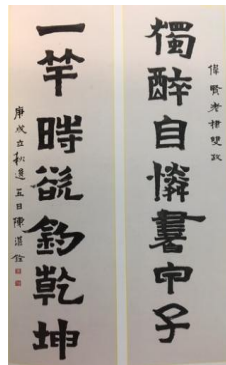 偉賢老棣雙政
獨醉自憐書甲子
一竿時欲釣乾坤
庚戌立秋逾五日陳湛銓